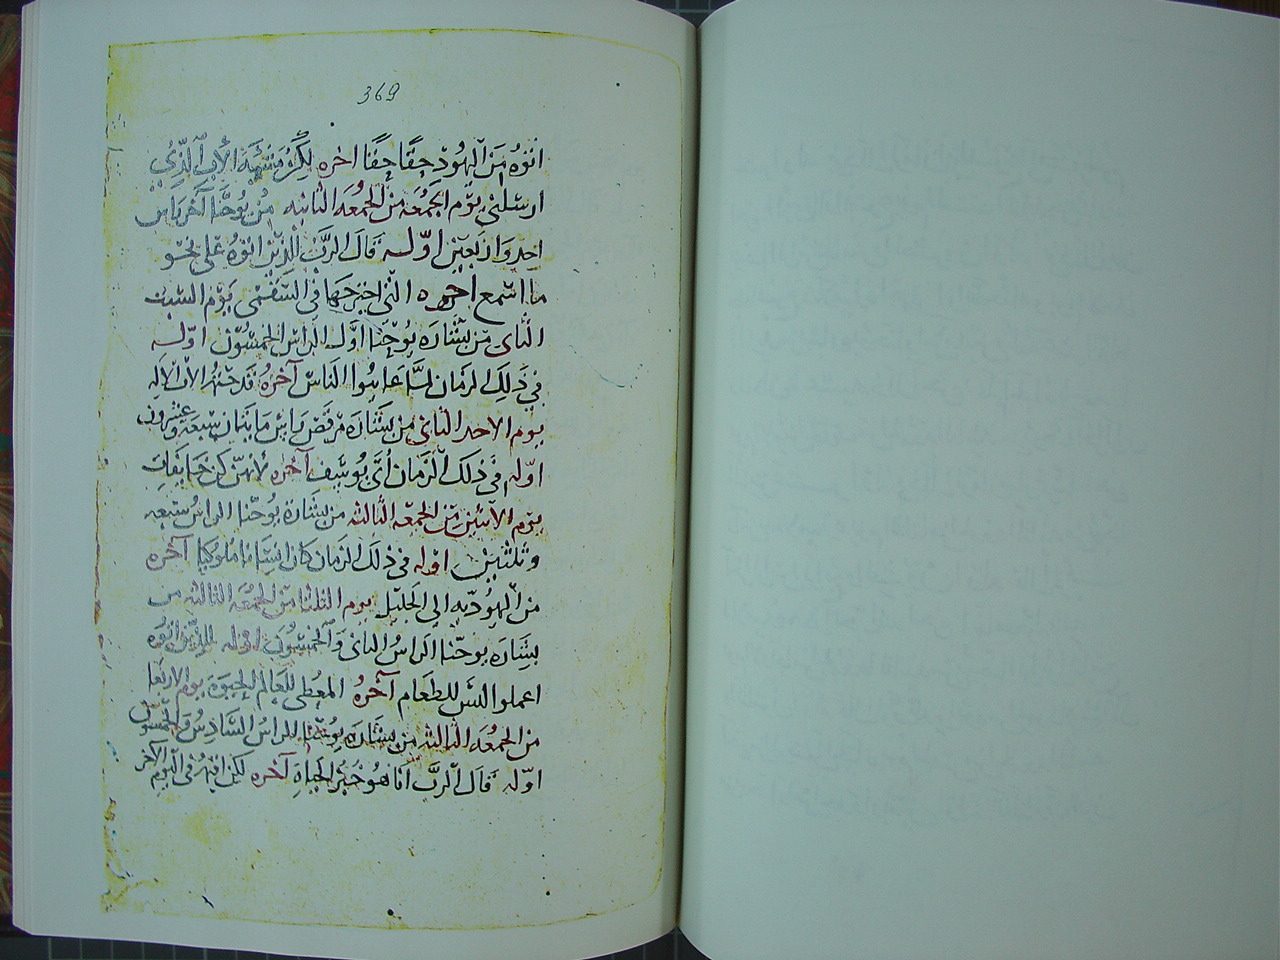 369
اتوه من اليهود حقًا حقًا اخره لكرامة الاب الذي
ارسلني يوم الجمعه من الجمعه الثانيه من يوحنا الراس
احد واربعين اوله قال الرب للذين اتوه على نحو
ما اسمع اخره التي اخرجها في السفر يوم السبت
الثاني من بشاره يوحنا اوله الراس الخمسون اوله
في ذلك الزمان لما عاينوا الناس آخره قد ختمه الاب الاله
يوم الاحد الثاني من بشاره مرقص راس مايتان سبعه وعشرون
اوله في ذلك الزمان أتى يوسف آخره لأنهن كن خايفات
يوم الاثنين من الجمعه الثالثه من بشارة يوحنا الراس سبعه
وثلثين اوله في ذلك الزمان كان انسانا ملوكيا آخره
من اليهوديه الى الجليل يوم الثلثا من الجمعه الثالثه من
بشاره يوحنا الراس الثاني والخمسون اوله للذين اتوه
اعملوا ليس للطعام آخره المعطي للعالم الحيوة يوم الاربعا
من الجمعه الثالثه من بشاره يوحنا الراس السادس والخمسون
اوله قال الرب انا هو خبز الحياة آخره لكن اقيمه في اليوم الآخر